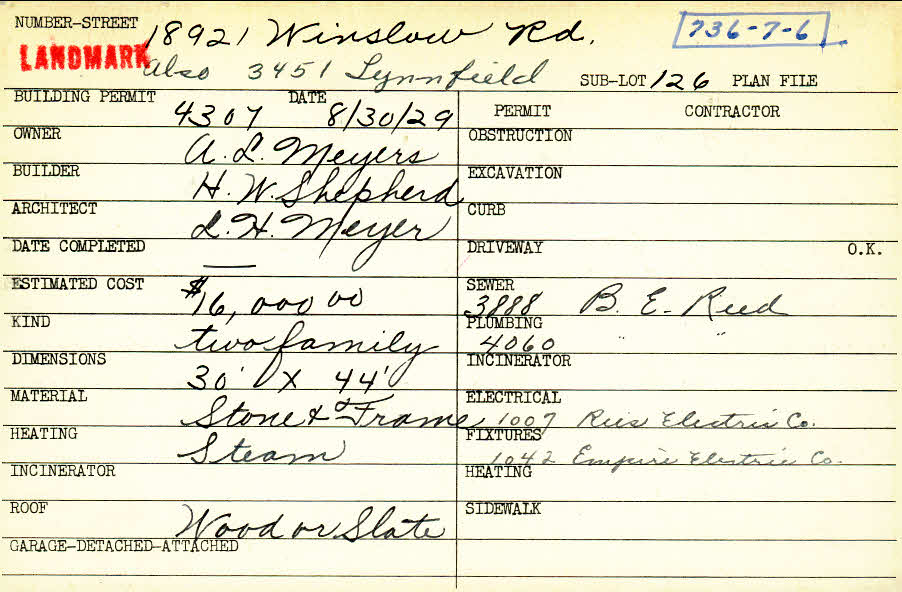 NUMBER-STREET 18921 Winslow Rd. 736-7-6
LANDMARK Also 3451 Lynnfield SUB-LOT 126 PLAN FILE
BUILDING PERMIT 4307 DATE 8/30/29 PERMIT CONTRACTOR
OWNER A. L. Meyers OBSTRUCTION
BUILDER H. W. Shepherd EXCAVATION
ARCHITECT L. H. Meyer CURB
DATE COMPLETED — DRIVEWAY O.K.
ESTIMATED COST $16,000 00 SEWER 3888 B. E. Reed
KIND two family PLUMBING 4060 " "
DIMENSIONS 30' X 44' INCINERATOR
MATERIAL Stone & Frame ELECTRICAL 1007 Electric Co.
HEATING Steam FIXTURES 1042 Empire Electric Co.
INCINERATOR HEATING
ROOF Wood or Slate SIDEWALK
GARAGE-DETACHED-ATTACHED